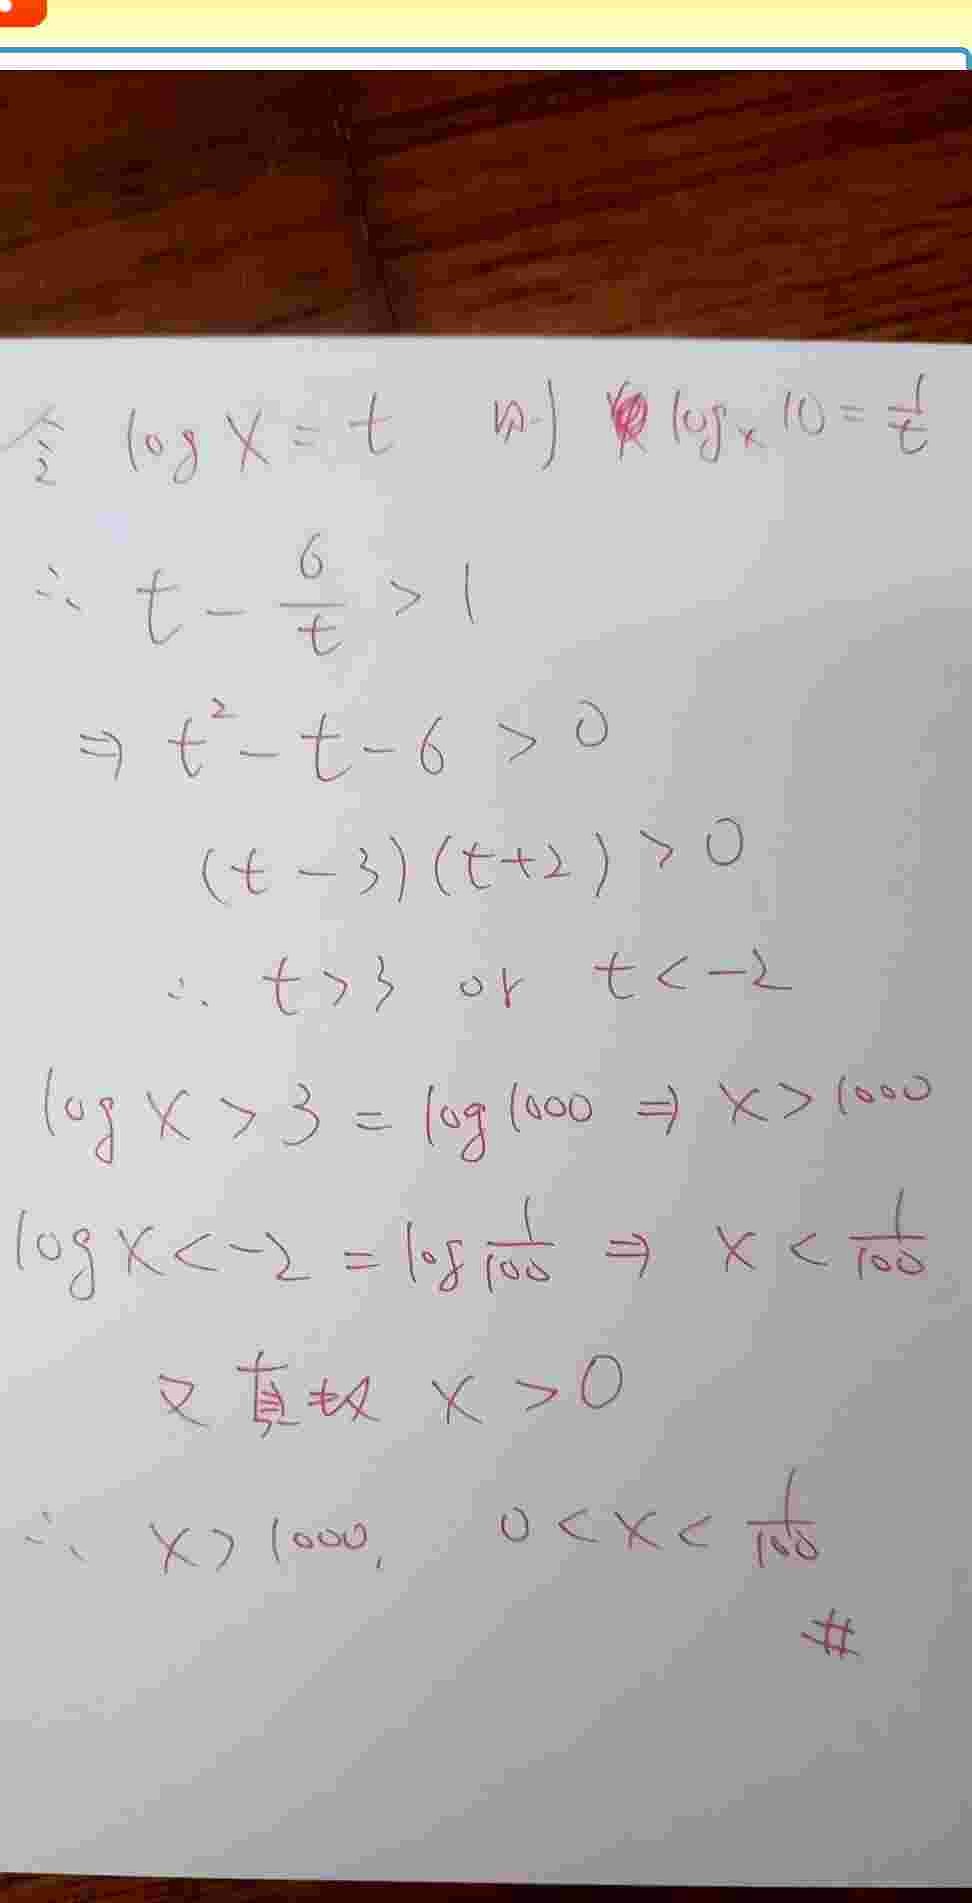 令 log x = t 則 logₓ 10 = 1/t
∴ t - 6/t > 1
⇒ t² - t - 6 > 0
(t - 3)(t+2) > 0
∴ t > 3 or t < -2
log x > 3 = log 1000 ⇒ x > 1000
log x < -2 = log 1/100 ⇒ x < 1/100
又真数 x > 0
∴ x > 1000, 0 < x < 1/100
#